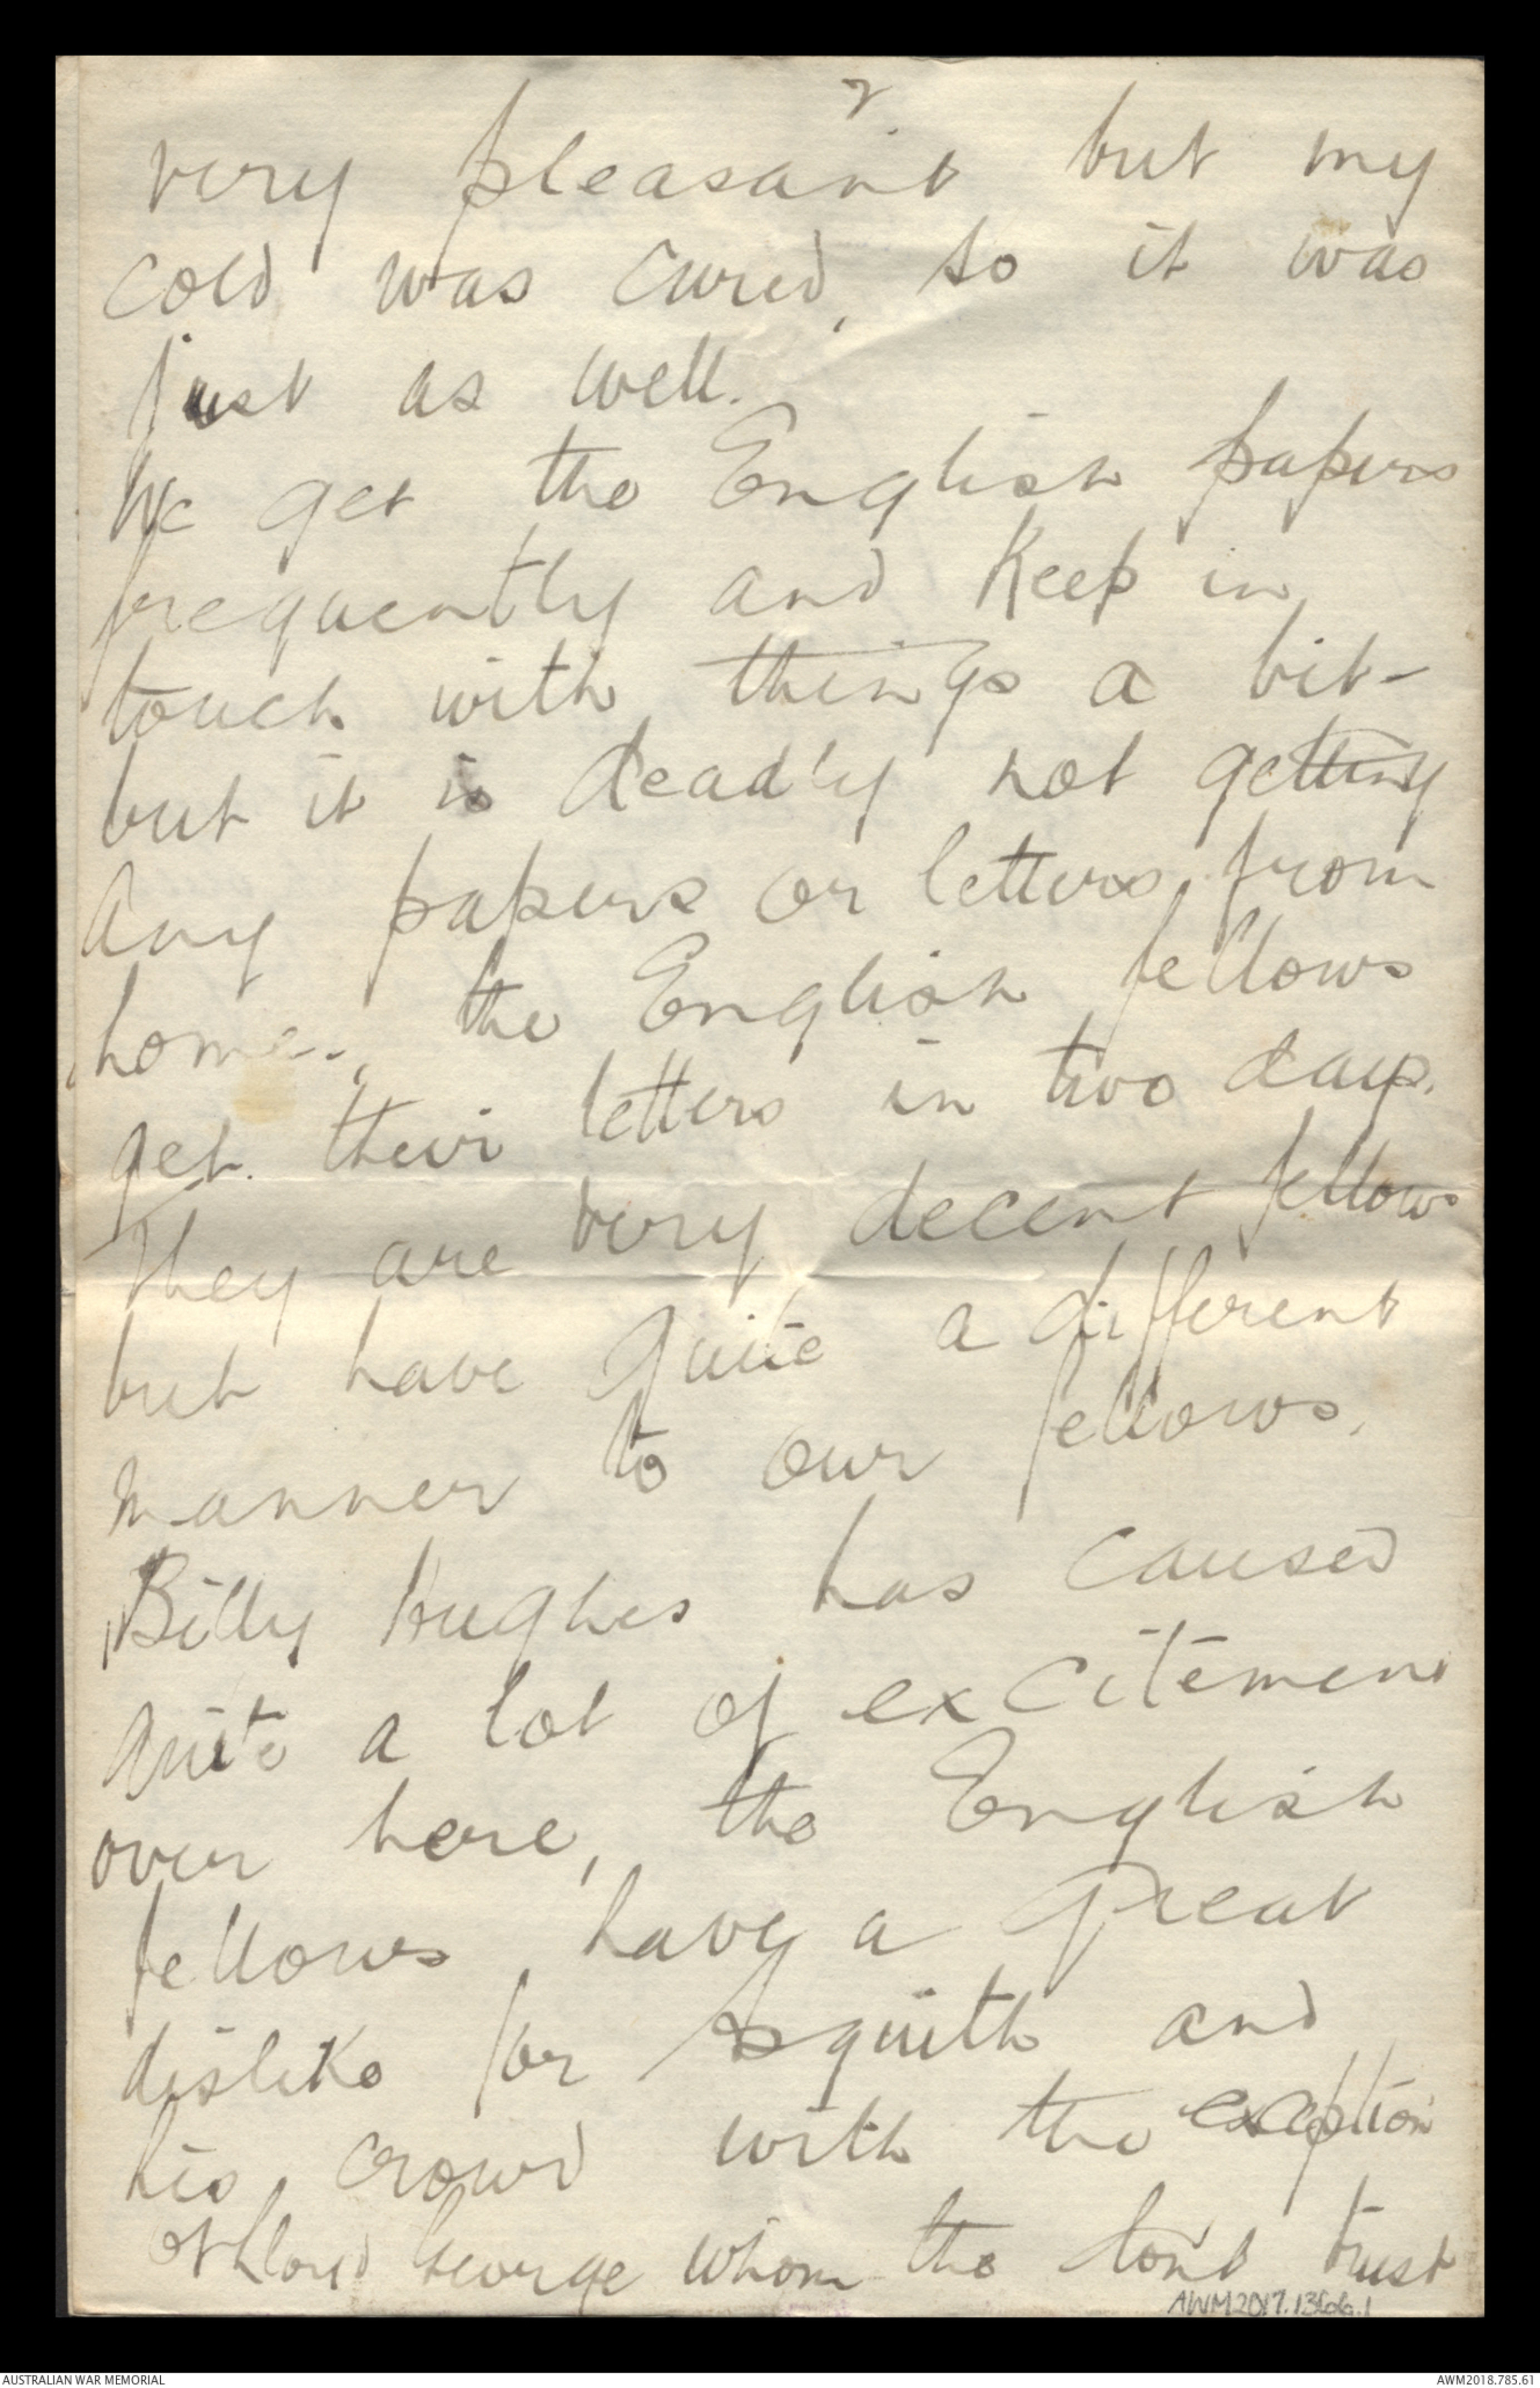 2.
very pleasant but my
cold was cured, so it was
just as well.
We get the English papers
frequently and keep in
touch with things a bit -
but it is deadly not getting
any papers or letters from
home., the English fellows
get their letters in two days.
They are very decent fellows
but have quite a different
manner to our fellows.
Billy Hughes has caused
quite a lot of excitement
over here, the English
fellows have a great
dislike for Asquith and
his crowd with the exception
of Lloyd George whom the don't trust
AWM2017.1366.1
AUSTRALIAN WAR MEMORIAL
AWM2018.785.61